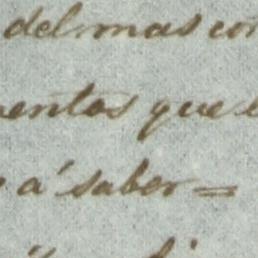 del mas con
mentos que
a' saber=